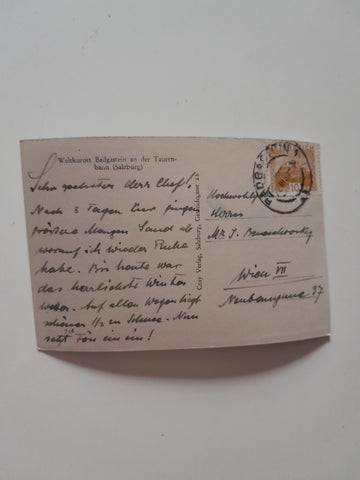 Weltkurort Badgastein an der Tauern-
bahn (Salzburg)
Sehr geehrter Herr Chef!
Nach 3 Tagen Kur gingen
größere Mengen Sand ab
worauf ich wieder Ruhe
habe. Bis heute war
das herrlichste Winter
wetter. Auf allen Wegen liegt
schöner 1/2 m Schnee. Nun
setzt Fön ein ein!
Cosy Verlag, Salzburg, Getreidegasse 22
BADGASTEIN
10
Hochwohlgeboren
Herrn
J.
Wien VII
Neubaugasse 37